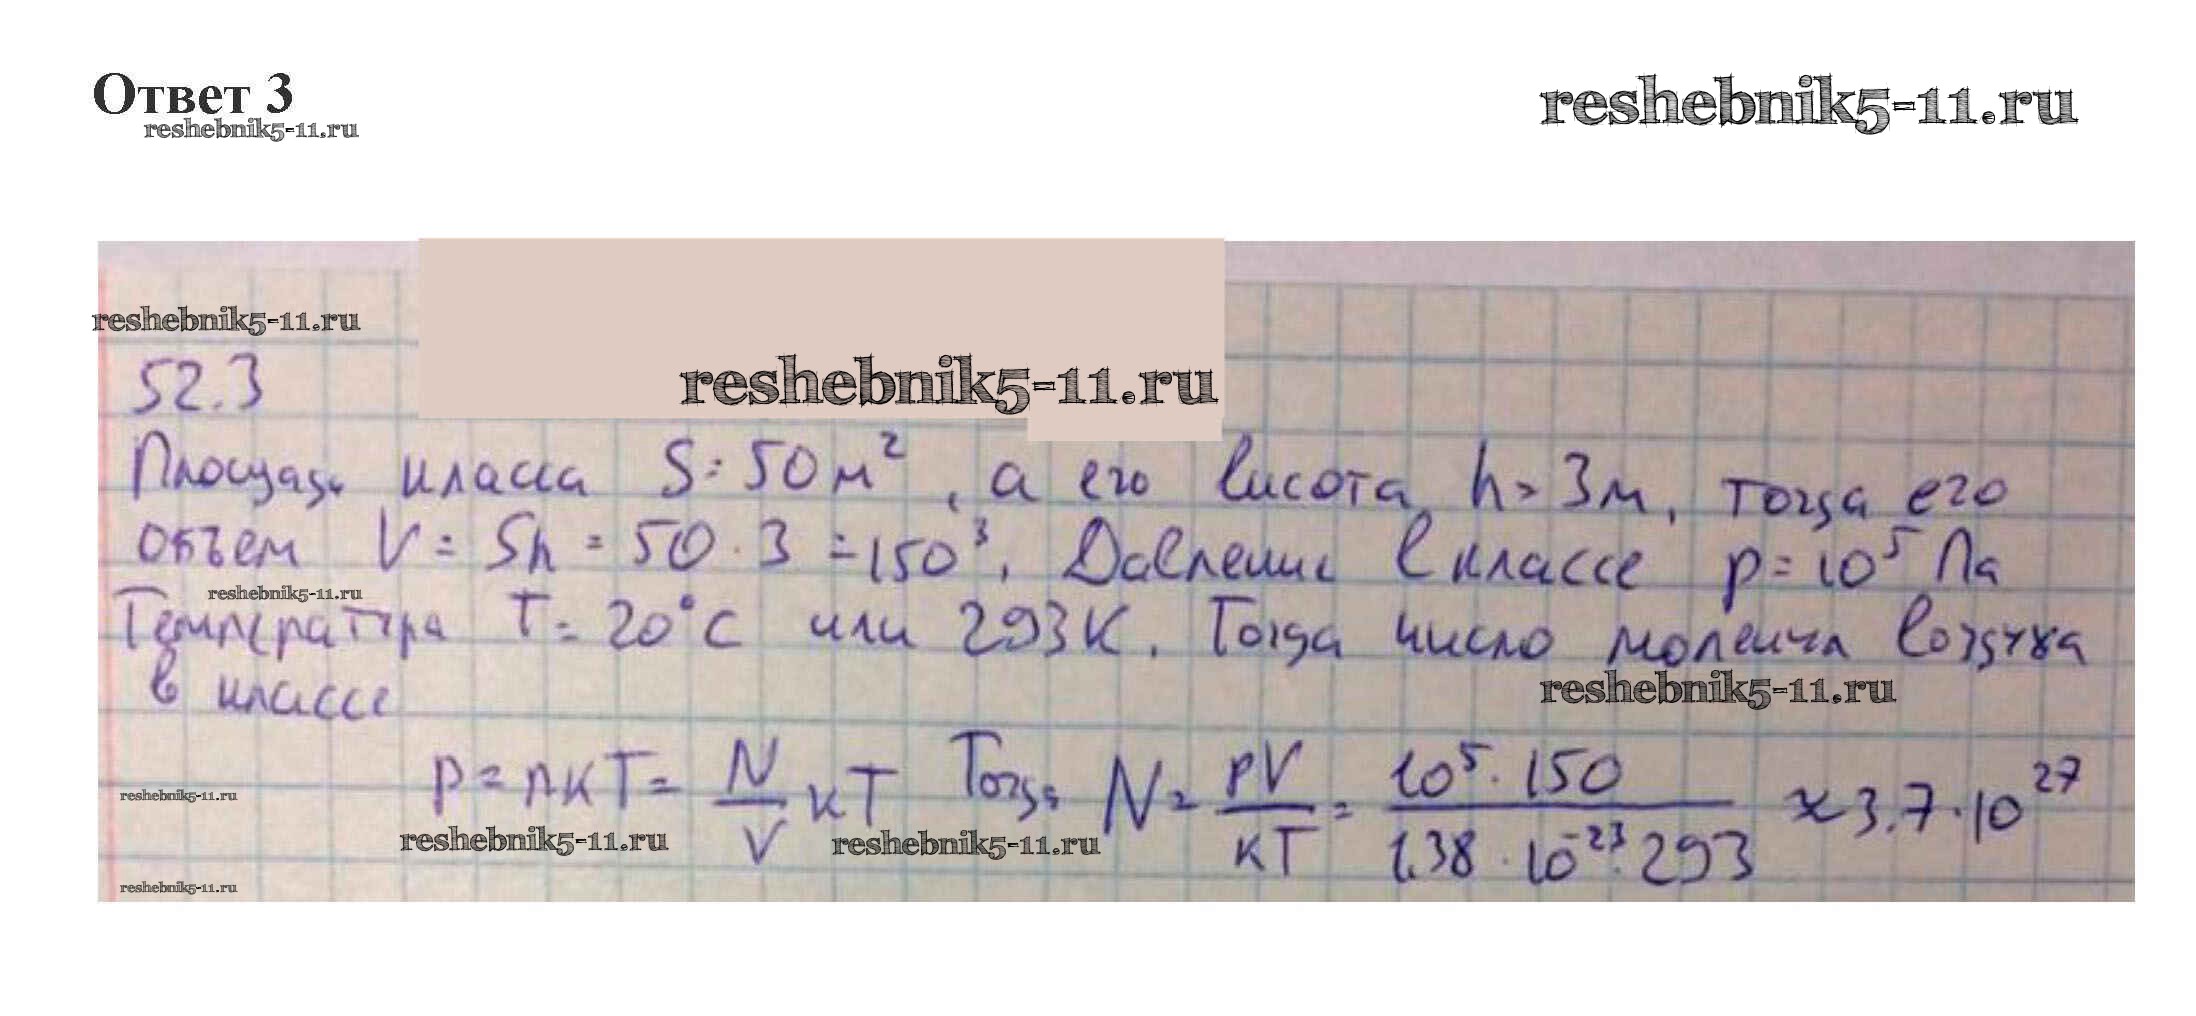 Ответ 3
reshebnik5-11.ru
reshebnik5-11.ru
reshebnik5-11.ru
52.3
reshebnik5-11.ru
Площадь класса S = 50 м², а его висота h = 3м, тогда его
объем V = Sh = 50 · 3 = 150³. Давление в классе p = 10⁵ Па
reshebnik5-11.ru
Температура T = 20°C или 293К. Тогда число молекул воздуха
в классе
reshebnik5-11.ru
p = nкT = N/V кT Тогда N = pV/кT = 10⁵ · 150 / 1,38 · 10⁻²³ · 293 ≈ 3,7 · 10²⁷
reshebnik5-11.ru
reshebnik5-11.ru
reshebnik5-11.ru
reshebnik5-11.ru